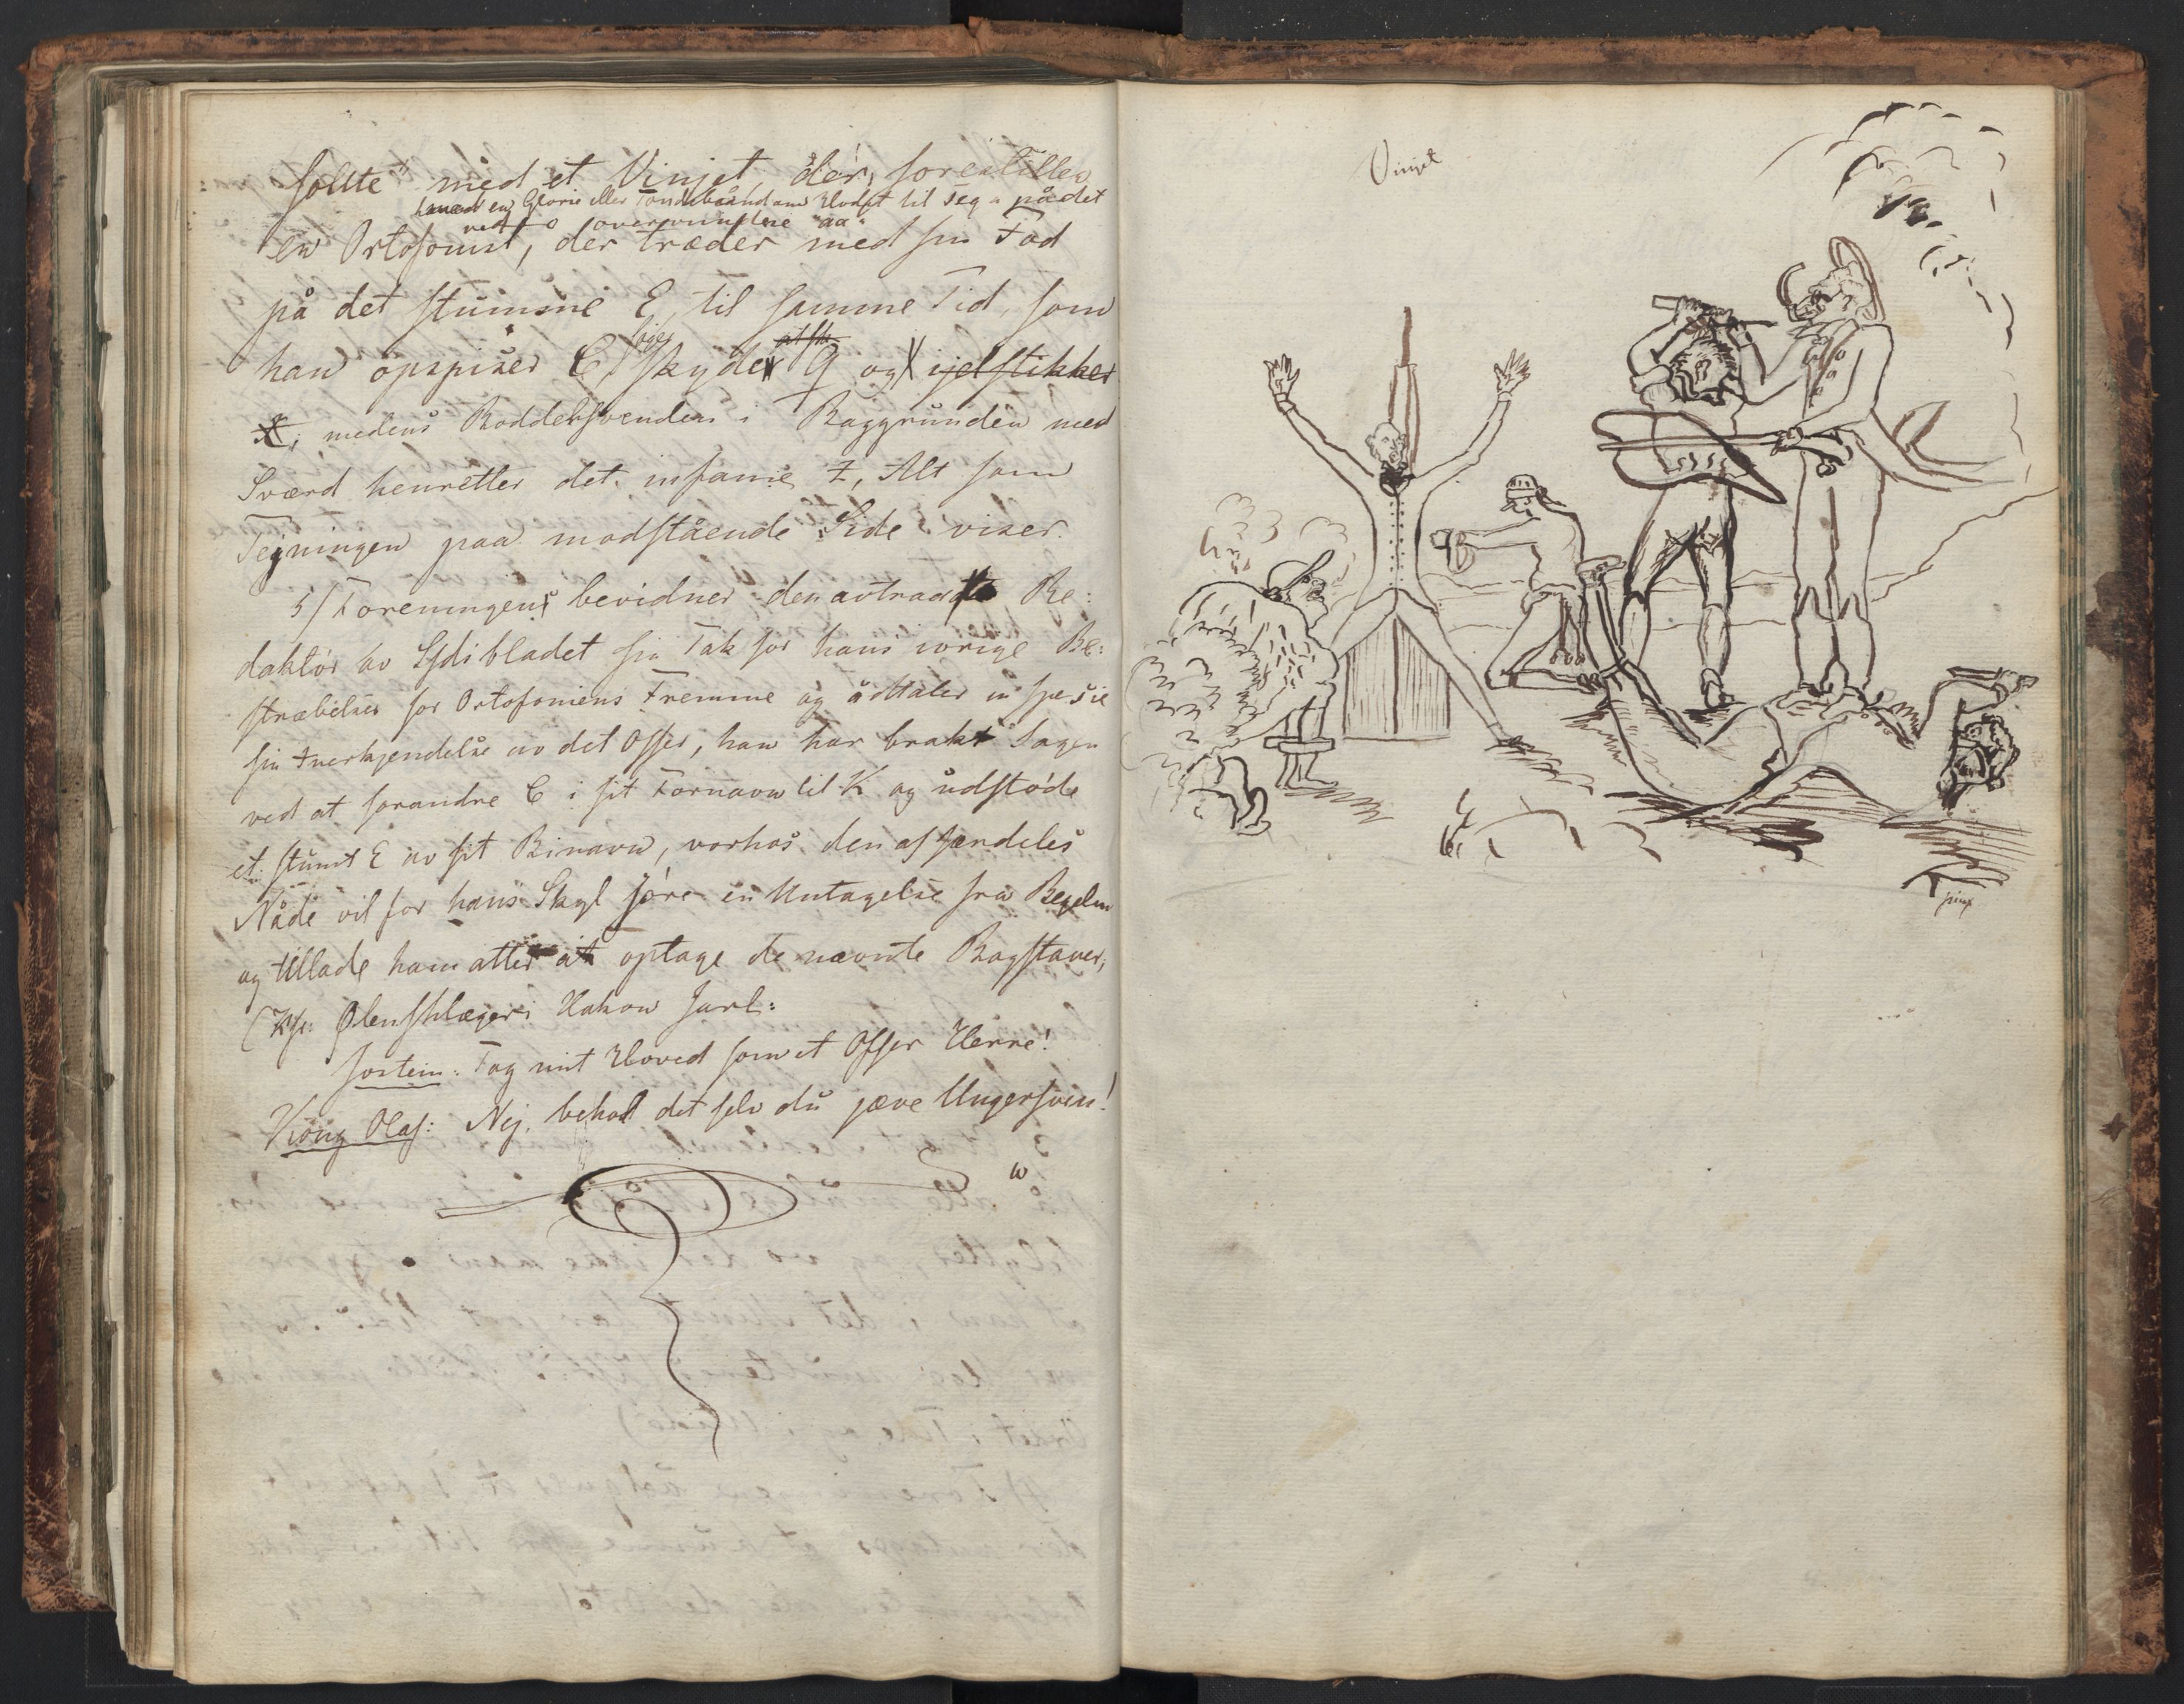 sollte" med et Vinjet, der, forestiller
(med en Glorie eller Tøndebånd om Hodet til Tegn på det
ved o overvundne "aa"
en Ortofonist, der træder med sin Fod
på det stumme E, til samme Tid, som
han opspiser C, skyder Q og ijelstikker
X; medens Bøddelsvenden i Baggrunden med
Sværd henretter det infame Z, Alt som
Tegningen paa modstående Side viser.
5/ Foreningen bevidner den avtraadte Re:
daktör av Lydibladet sin Tak for hans ivrige Be:
stræbelser for Ortofoniens Fremme og udtaler in spesie
sin Anerkjendelse av det Offer, han har brakt Sagen
ved at forandre C i sit Fornavn til K og udstøde
et stumt E av sit Binavn, vorhos den af særdeles
Nåde vil for hans Skyl jöre en Untagelse fra Regelen
og tillade ham atter at optage de nævnte Bogstaver,
(Kfr. Ølenschlægers Hakon Jarl:
Jostein: Tag mit Hoved som et Offer Herre!
Kong Olaf: Nej, behold det selv du jæve Ungersvend!
w
Vinjet
pinx